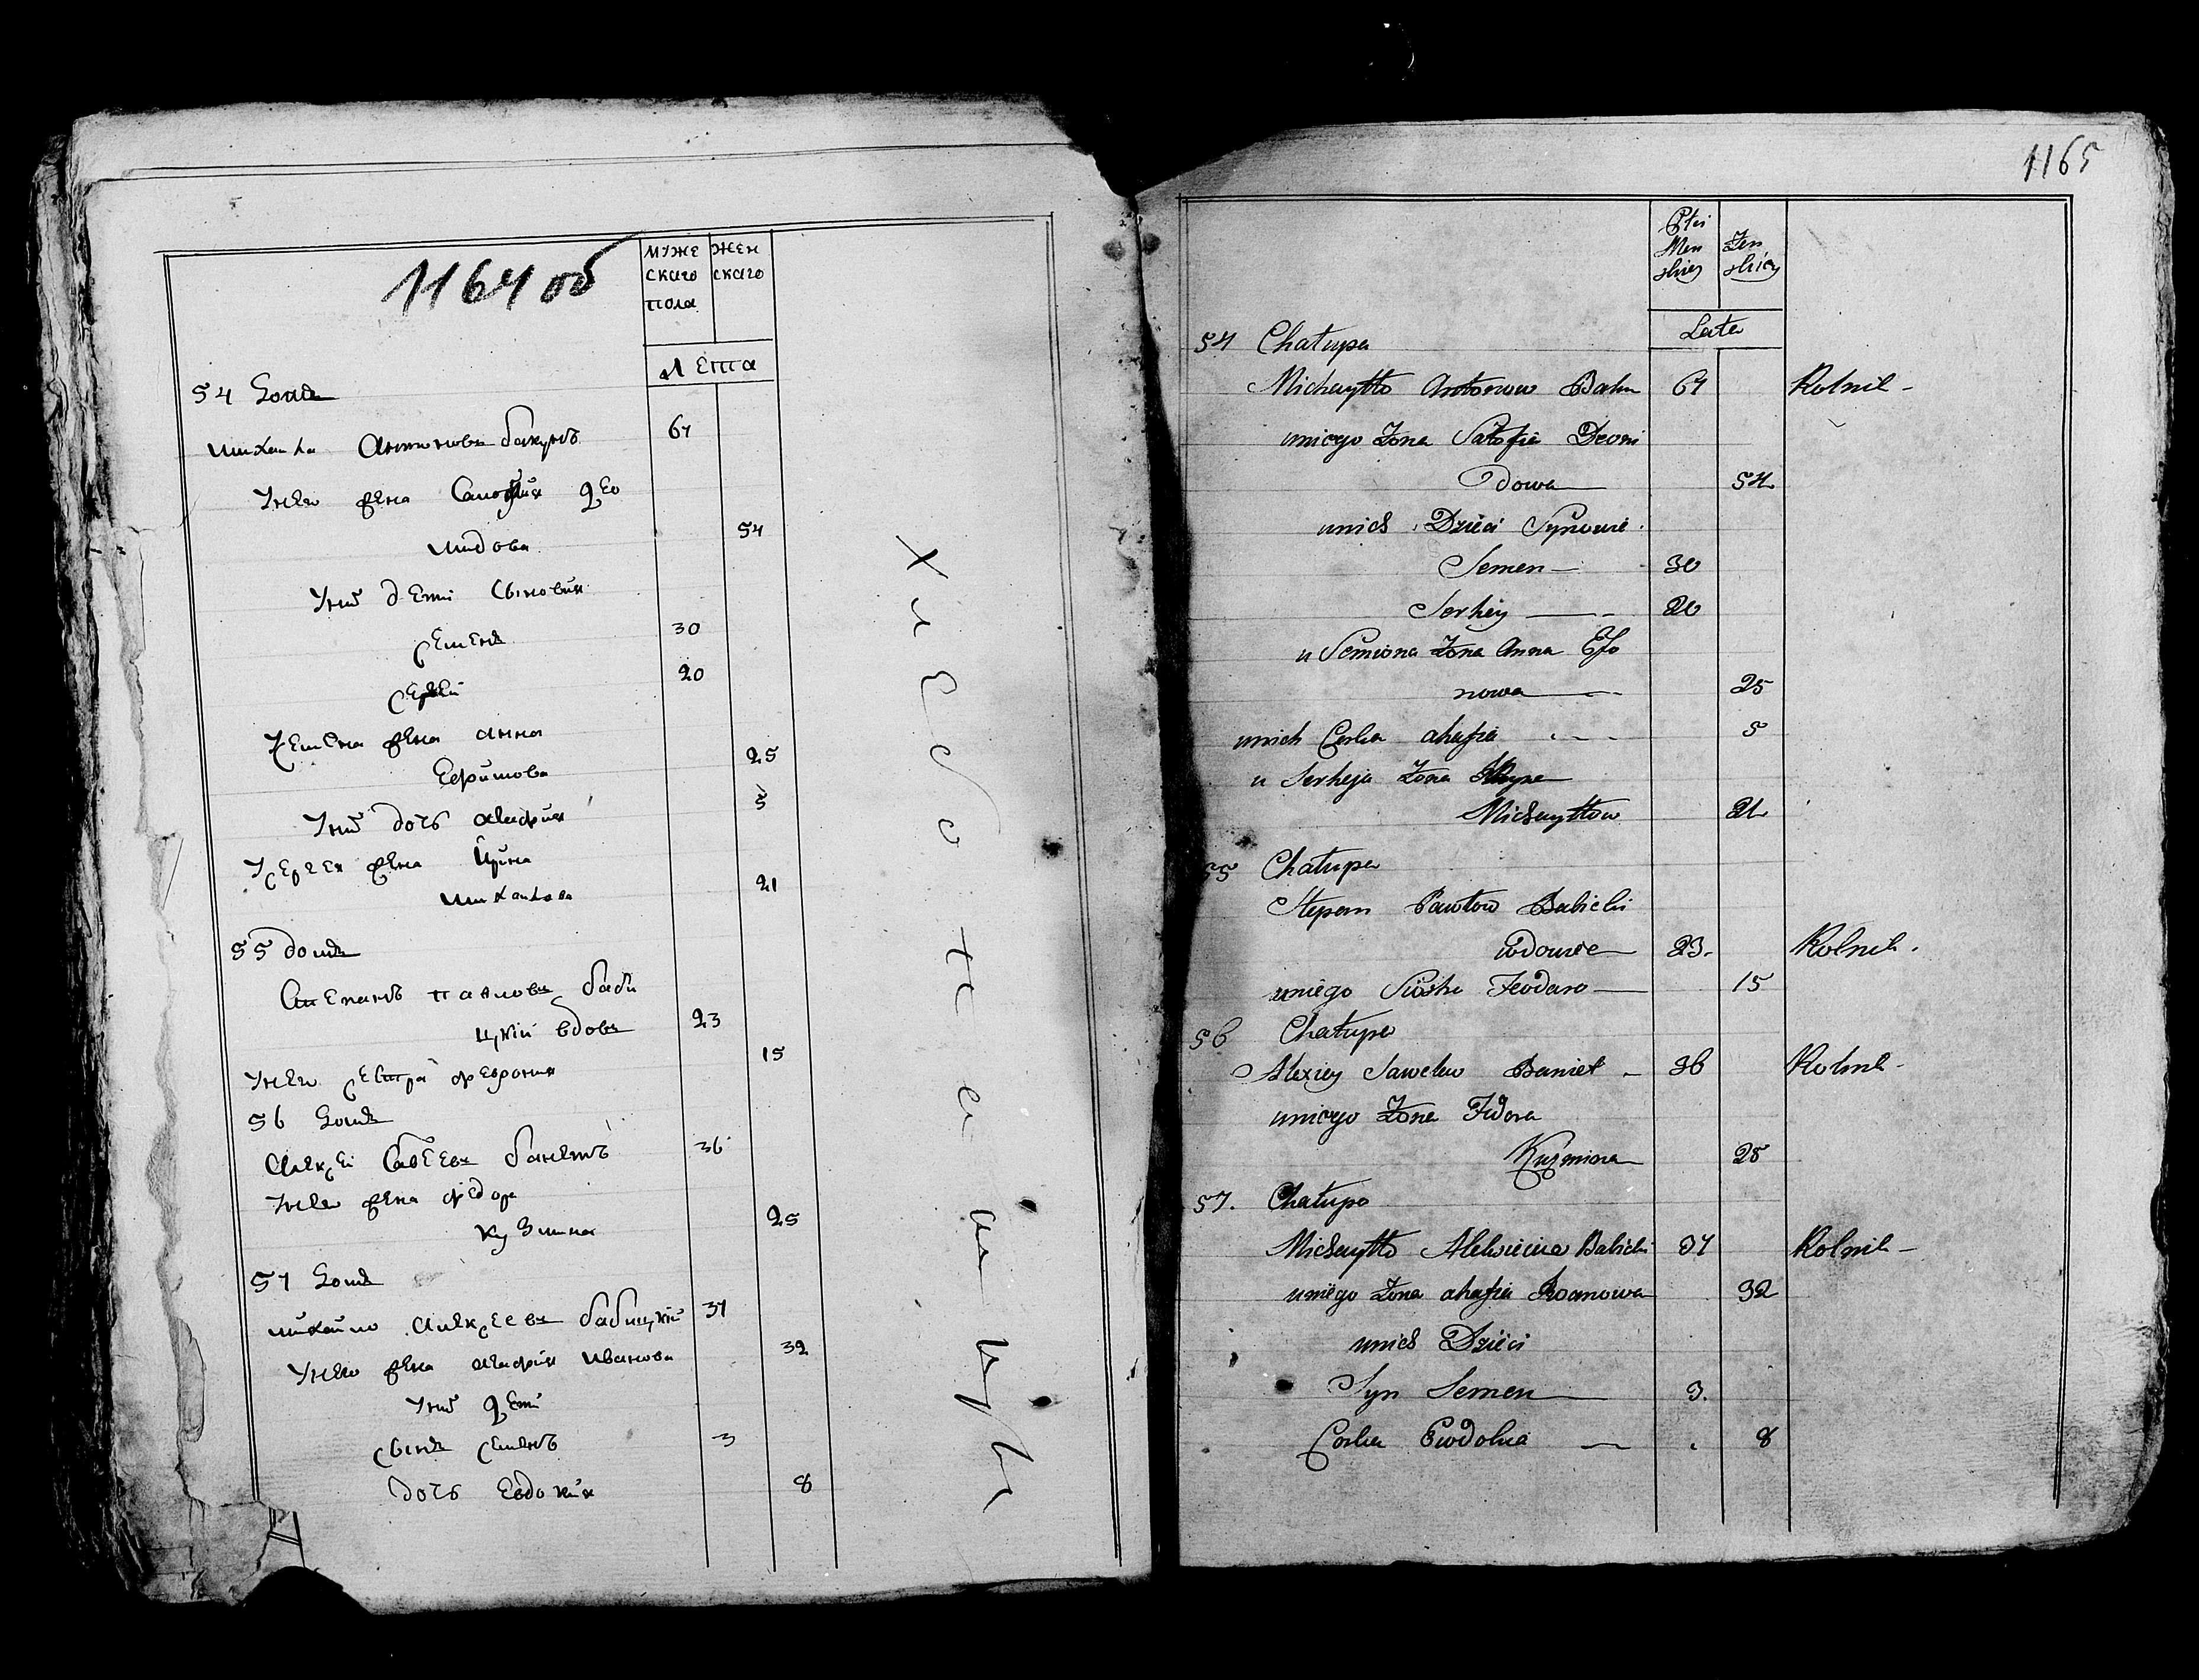 1164 об
муже
скаго
пола
жен
скаго
лѣта
54 Домъ
михаила Антоновъ бакунъ 67
Унего жена Соломия Део
мидова 54
Униⷯ дети Сыновия
Семенъ 30
Сергей 20
У Семена жена анна
Ефимова 25
Униⷯ дочь агафия 5
У Сергея жена Ирина
михайлова 21
55 домъ
Степанъ павловъ баби
цкий вдовъ 23
Унего сестра феврония 15
56 Домъ
Алексеи Савеевъ банетъ 36
Унего жена федора
кузмина 25
57 Домъ
михайло Алексеевъ бабицкий 37
Унего жена агафия иванова 32
Униⷯ дети
Сынъ Семенъ 3
дочь Евдокия 8
хлебопашцы
1165
Płci
Męs
skiey
Żeń
skiey
Lata
54 Chałupa
Michayłło Antonow Bakun 67 Rolnik -
uniego Żona Deomi
dowa 54
unich Dzieci Synowie
Semen 30
Serhiey 20
u Semiona Żona Anna
nowa 25
unich Corka ahafia 5
u Serheja Żona
Michayłłow 21
55 Chałupa
Stepan Pawłow Babicki
wdowiec 23. Rolnik.
uniego Siostra 15
56 Chałupa
Alexiey Sawelew Baniet 36 Rolnik -
uniego Żona Fidora
Kuźmina 25
57. Chałupa
Michayłło Babicki 37 Rolnik -
uniego Żona ahafia Iwanowa 32
unich Dzieci
Syn Semen 3.
Corka Ewdokia 8